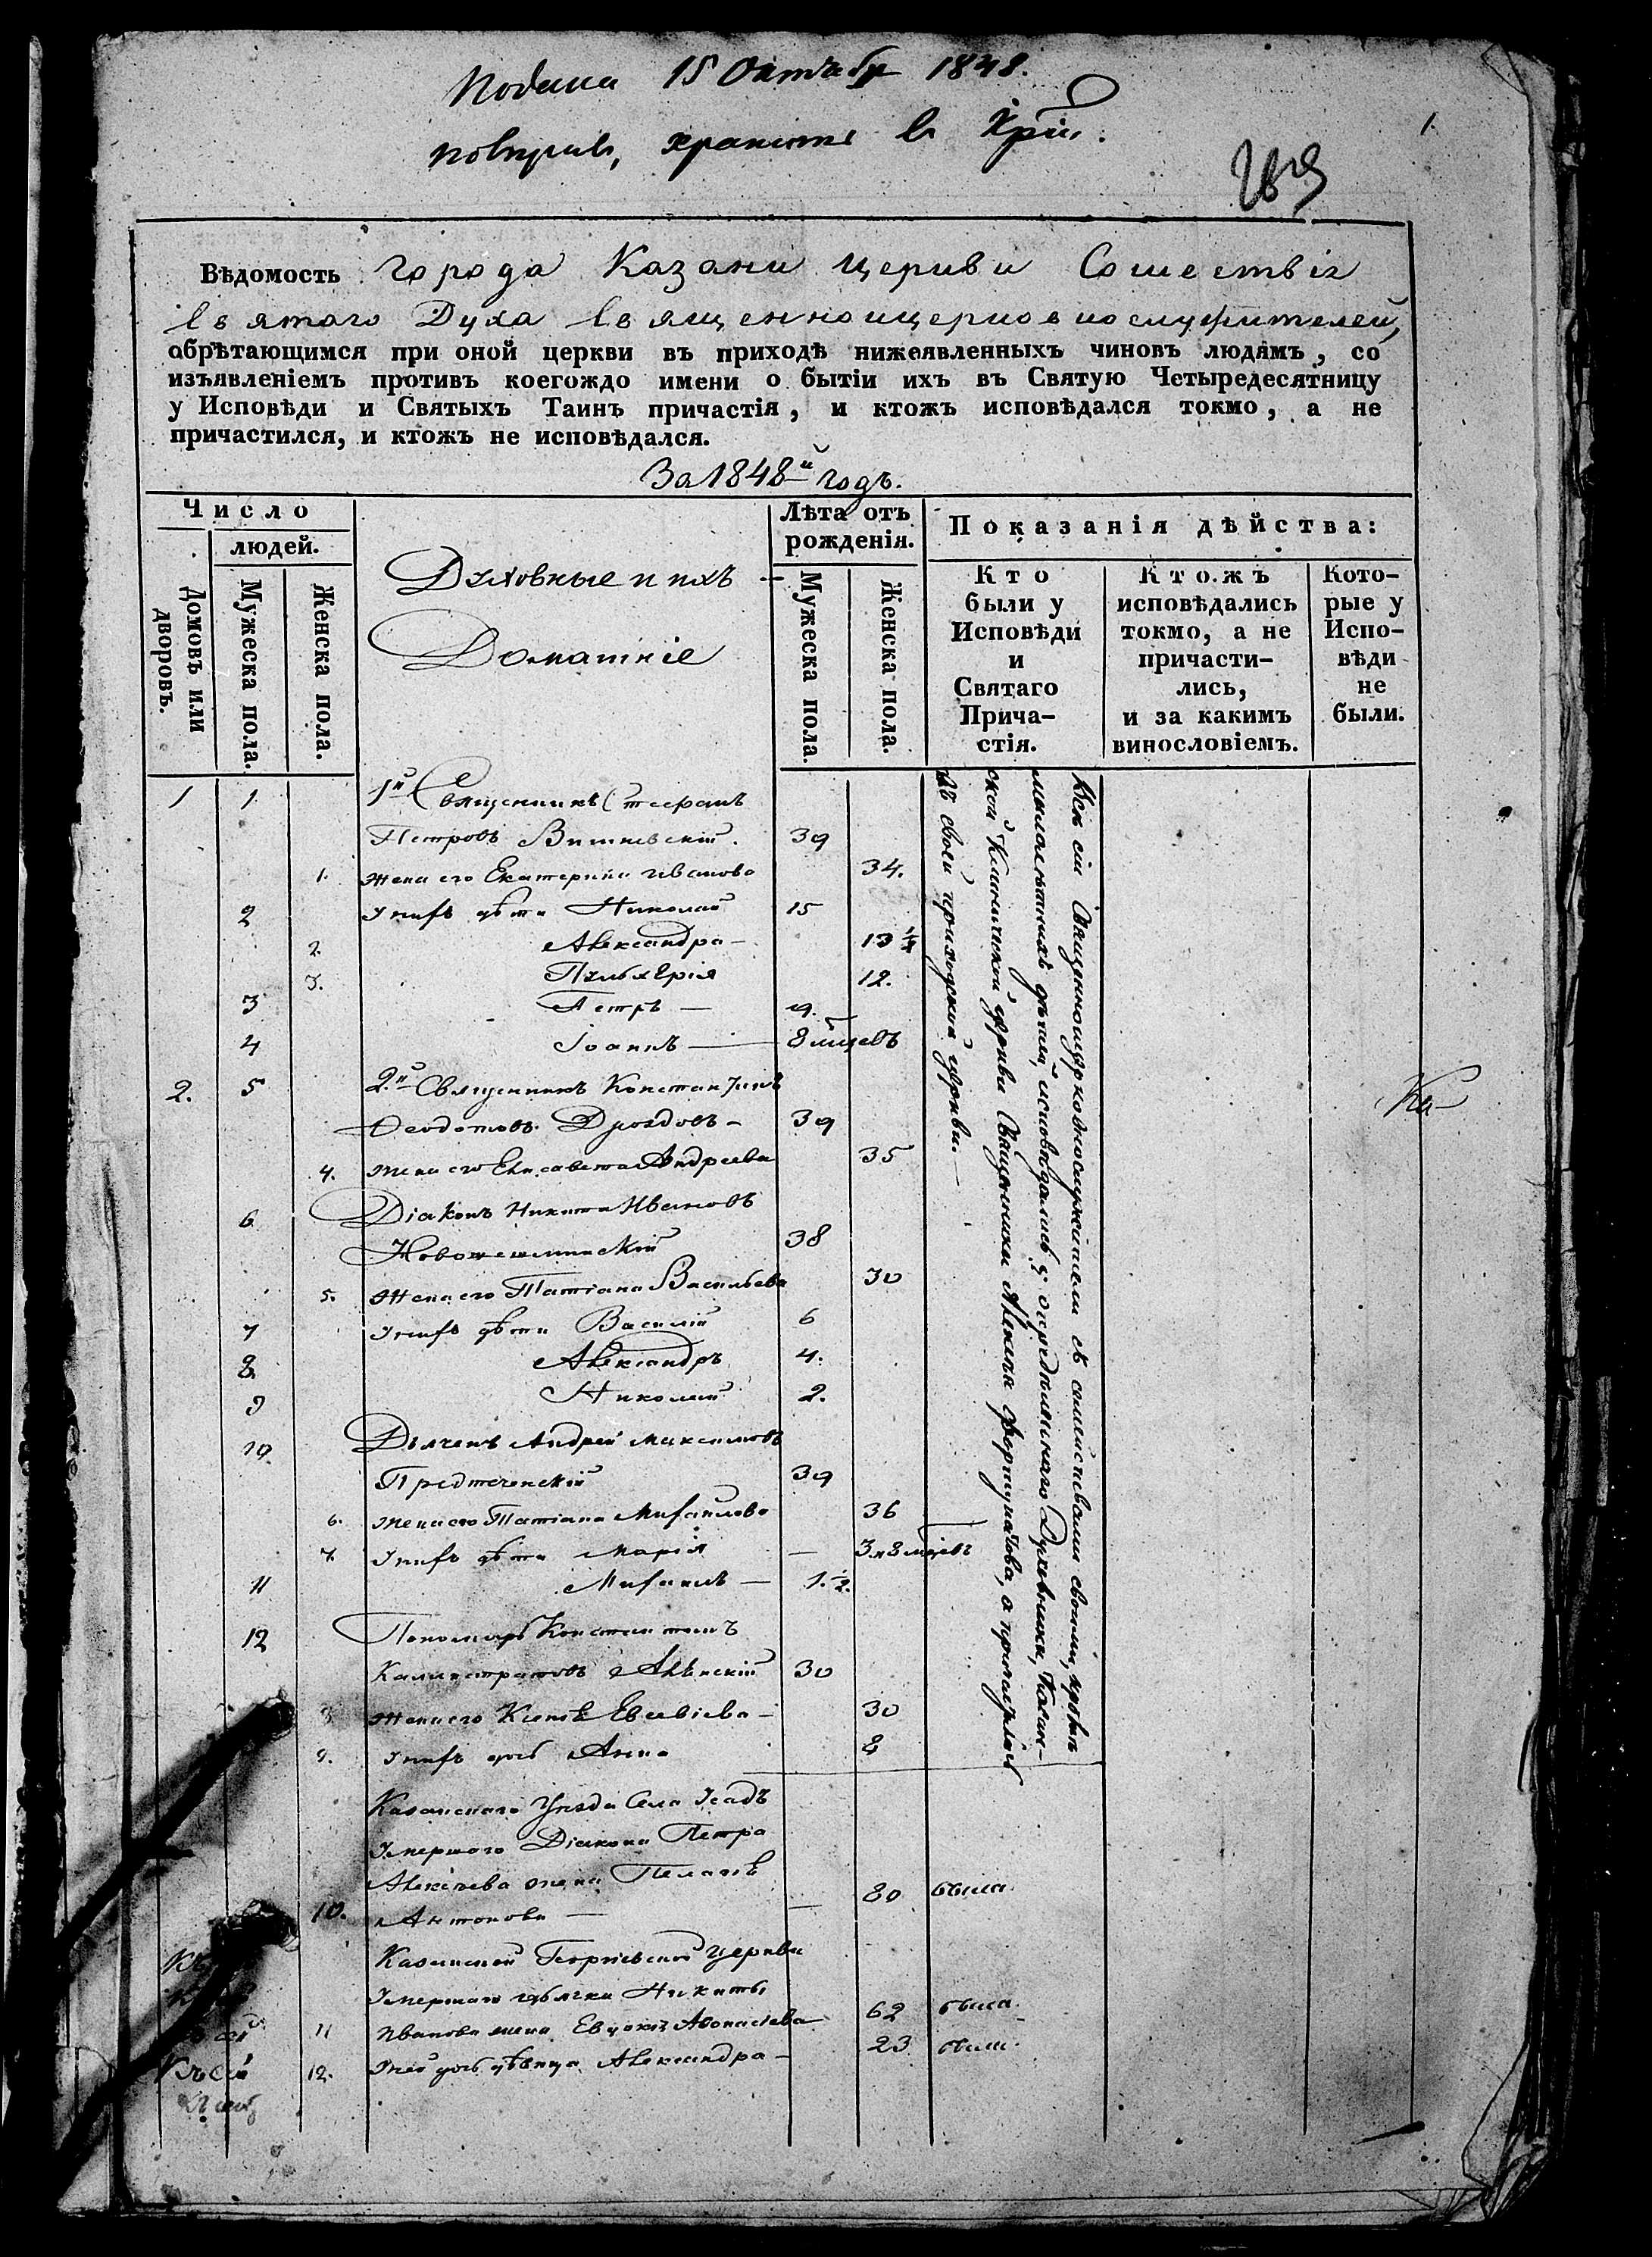 Подана 15 Октября 1848.
хранить в
1.
Вѣдомость города Казани церкви Сошествія
Святаго Духа Священноицерковнослужителей,
обрѣтающимся при оной церкви въ приходѣ нижеявленныхъ чиновъ людямъ, со
изъявленіемъ противъ коегождо имени о бытіи ихъ въ Святую Четыредесятницу
у Исповѣди и Святыхъ Таинъ причастія, и ктожъ исповѣдался токмо, а не
причастился, и ктожъ не исповѣдался.
За 1848й годъ.
Число
людей.
Домовъ или
дворовъ.
Мужеска пола.
Женска пола.
Духовные и ихъ
Домашніе
Лѣта отъ
рожденія.
Мужеска пола.
Женска пола.
Показанія дѣйства:
Кто
были у
Исповѣди
и
Святаго
Прича-
стія.
Кто.жъ
исповѣдались
токмо, а не
причасти-
лись,
и за какимъ
винословіемъ.
Кото-
рые у
Испо-
вѣди
не
были.
1 1 1й Священникъ Стефанъ
Петровъ Вишневскій. 39
1. Жена его Екатерина Иванова 34.
2 У нихъ дѣти Николай 15
2. Александра — 13 ½
3. Пульхерія 12.
3 Петръ — 9.
4 Іоаннъ — 8 мцевъ
2. 5 2.й Священникъ Константинъ
Ѳеодотовъ Дроздовъ — 39
4. Жена его Елисавета Андреева 35
6 Діаконъ Никита Ивановъ
Новошешминскій 38
5. Жена его Татіана Васильева 30
7 У нихъ дѣти Василій 6
8 Александръ 4.
9 Николай 2.
10 Дьячекъ Андрей Максимовъ
Предтеченскій 39
6. Жена его Татіана Михайлова 36
7. У нихъ дѣти Марія — 3 и 8 мцевъ
11 Михаилъ — 1. ½.
12 Пономарь Константинъ
Каллистратовъ 30
8 Жена его Евсевіева — 30
9. У нихъ дочь Анна 8
Всѣ сіи Священноицерковнослужители съ семействами своими, кромѣ
малолѣтнихъ дѣтей, исповѣдались у опредѣленнаго Духовника, Казан-
ской церкви Священника Алексѣя Фортунатова, а
въ своей приходской церкви. —
Казанскаго Уѣзда Села
Умершаго Діакона Петра
Алексѣева жена Пелагія
10. Антонова — 80 была.
Казанской Георгіевской церкви
Умершаго дьячка Никиты
11 Иванова жена Евдокія Аѳонасіева 62 была.
12. Ея дочь дѣвица Александра — 23 была.